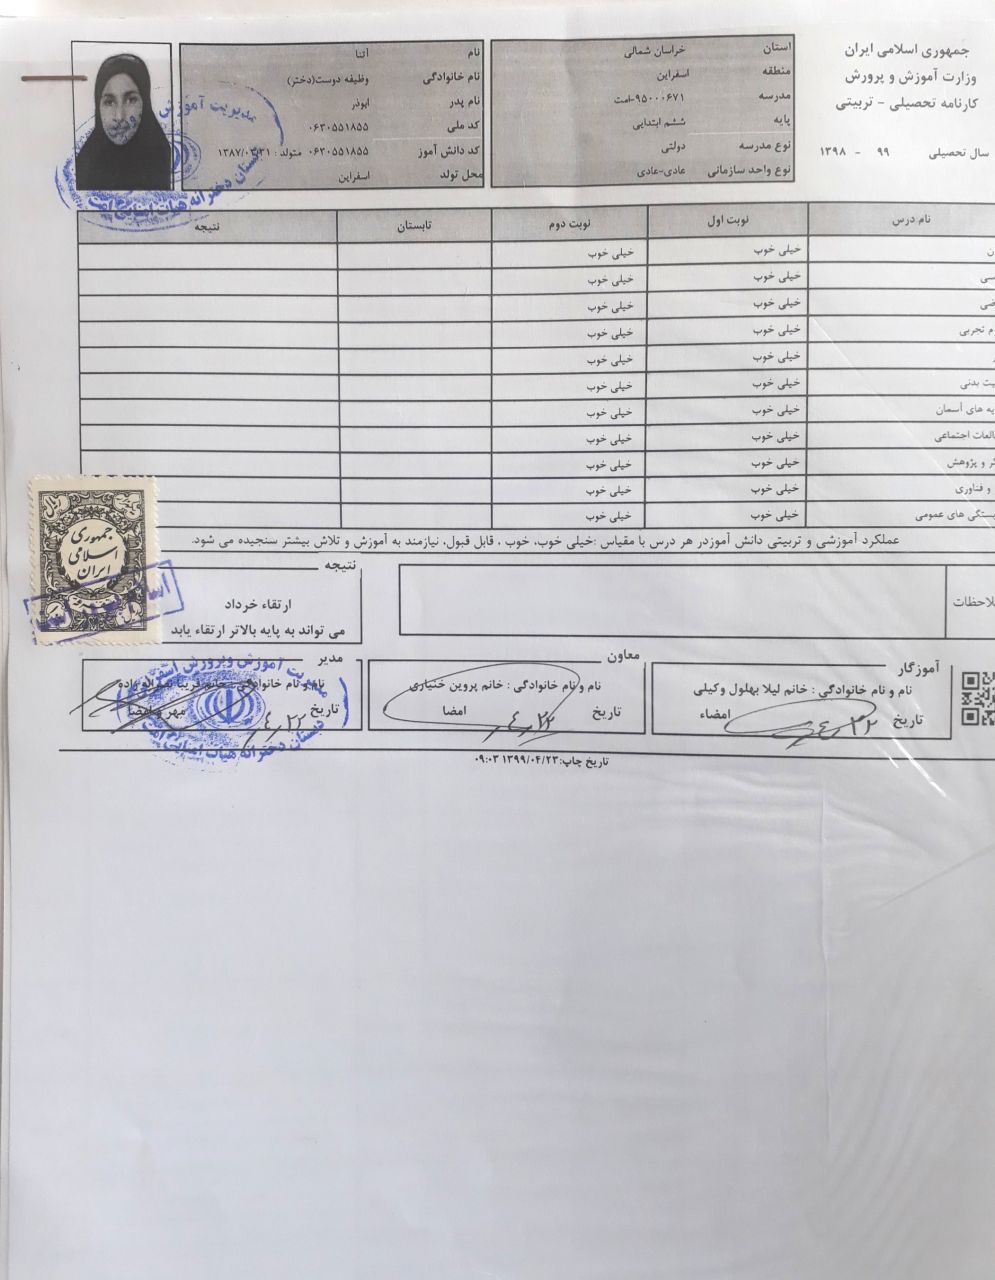 جمهوری اسلامی ایران
وزارت آموزش و پرورش
کارنامه تحصیلی - تربیتی
سال تحصیلی ۹۹ - ۱۳۹۸
استان خراسان شمالی
منطقه اسفراین
مدرسه ۹۵۰۰۰۶۷۱-امت
پایه ششم ابتدایی
نوع مدرسه دولتی
نوع واحد سازمانی عادی-عادی
نام آتنا
نام خانوادگی وظیفه دوست(دختر)
نام پدر ابوذر
کد ملی ۰۶۳۰۵۵۱۸۵۵
کد دانش آموز ۰۶۳۰۵۵۱۸۵۵ متولد : ۱۳۸۷/۰۳/۳۱
محل تولد اسفراین
مدیریت آموزش
دبستان دخترانه هیات امنایی امت
نام درس نوبت اول نوبت دوم تابستان نتیجه
ن خیلی خوب خیلی خوب
سی خیلی خوب خیلی خوب
ضی خیلی خوب خیلی خوب
م تجربی خیلی خوب خیلی خوب
خیلی خوب خیلی خوب
یت بدنی خیلی خوب خیلی خوب
یه های آسمان خیلی خوب خیلی خوب
لعات اجتماعی خیلی خوب خیلی خوب
ر و پژوهش خیلی خوب خیلی خوب
و فناوری خیلی خوب خیلی خوب
ستگی های عمومی خیلی خوب خیلی خوب
عملکرد آموزشی و تربیتی دانش آموزدر هر درس با مقیاس :خیلی خوب، خوب ، قابل قبول، نیازمند به آموزش و تلاش بیشتر سنجیده می شود.
لاحظات
نتیجه
ارتقاء خرداد
می تواند به پایه بالاتر ارتقاء یابد
ریال
جمهوری
اسلامی
ایران
آموزگار
نام و نام خانوادگی : خانم لیلا بهلول وکیلی
تاریخ ۴/۲۲ امضاء
معاون
نام و نام خانوادگی : خانم پروین ختیاری
تاریخ ۴/۲۲ امضا
مدیر
نام و نام خانوادگی : خانم فریبا
تاریخ ۴/۲۲ مهر و امضا
مدیریت آموزش وپرورش اسفراین
دبستان دخترانه هیات امنایی امت
تاریخ چاپ:۱۳۹۹/۰۴/۲۳ ۰۹:۰۳